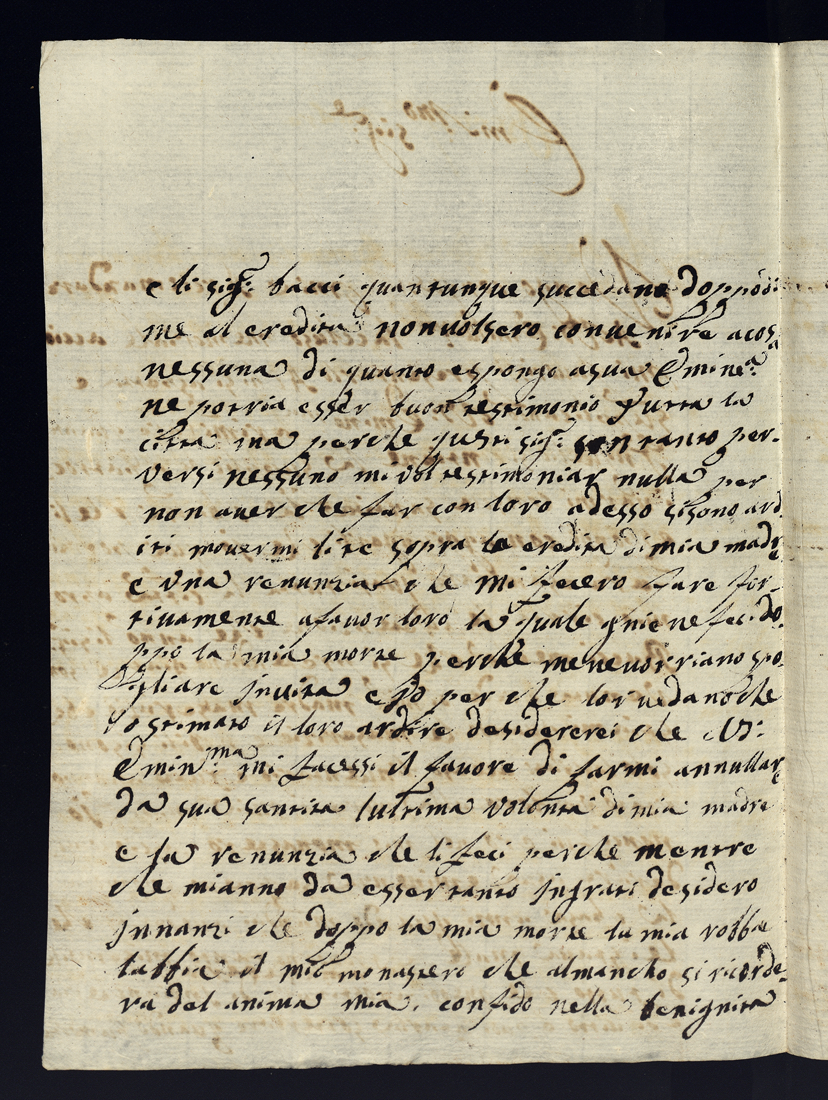 e li sigri: bacci quantunque succedano doppo di
me al eredita non volsero convenire a cosa
nessuna di quanto espongo a sua Eminea:
ne potria esser buon testimonio tutta la
citta ma perche questi sigri: son tanto per-
versi nessuno mi vol testimoniar nulla per
non aver che far con loro adesso si sono ard
iti movermi lite sopra la eredita di mia madre
e una renunzia che mi fecero fare for-
tivamente a favor loro la quale gniene feci do
ppo la mia morte perche me ne vorriano spo
gliare in vita e po per che lor vedano che
o stimato il loro ardire desidererei che V:
Emin:ma mi facessi il favore di farmi annullare
da sua santita lultima volonta di mia madre
e la renunzia che li feci perche mentre
che mianno da esser tanto ingrati desidero
innanzi che doppo la mia morte la mia robba
labbia il mio monastero che almancho si ricorde-
ra del anima mia. confido nella benignita